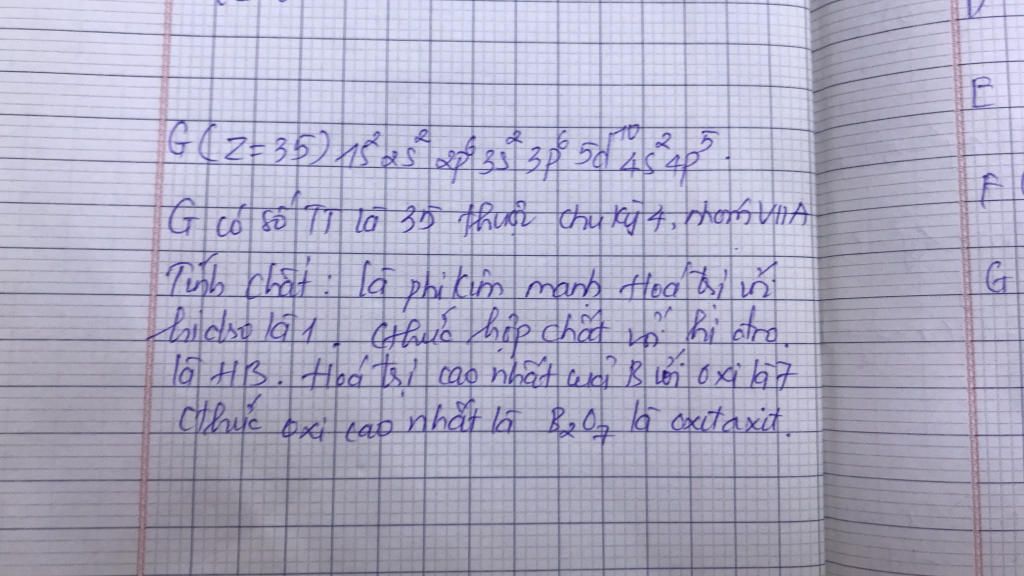 G (Z=35) 1s² 2s² 2p⁶ 3s² 3p⁶ 5d¹⁰ 4s² 4p⁵.
G có số TT là 35 thuộc chu kỳ 4, nhóm VIIA
Tính chất: là phi kim mạnh Hoá trị với
hidro là 1. Cthức hợp chất với hi đro.
là HB. Hoá trị cao nhất của B với oxi là 7
Cthức oxi cao nhất là B₂O₇ là oxitaxit.
E
F
G